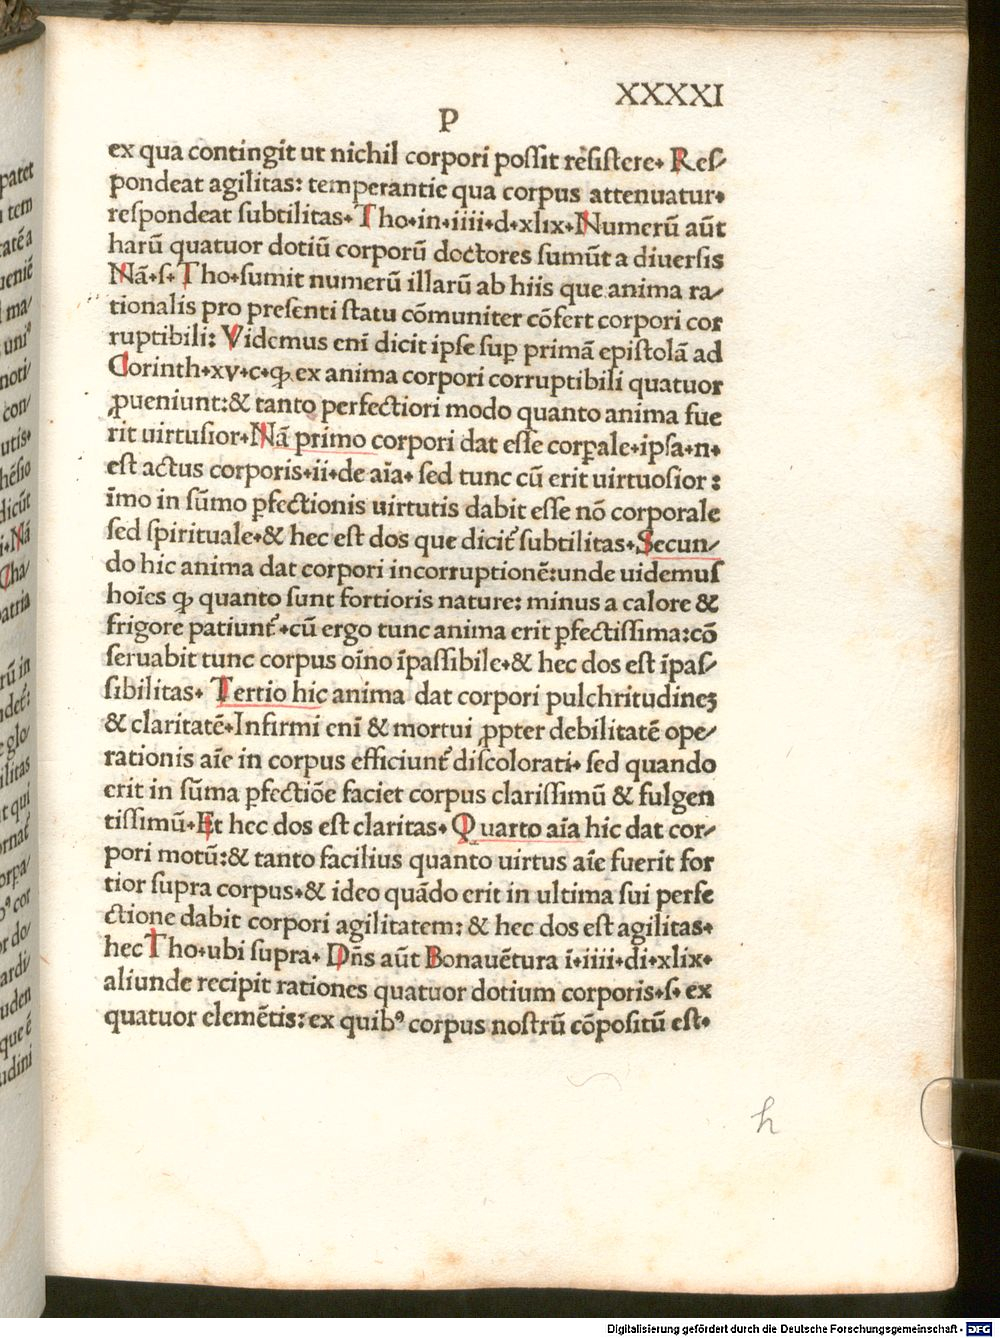 XXXXI
P
ex qua contingit ut nichil corpori poſſit reſiſtere. Reſ-
pondeat agilitas: temperantie qua corpus attenuatur.
reſpondeat ſubtilitas. Tho.in.iiii.d.xlix. Numerū aūt
harū quatuor dotiū corporū doctores ſumūt a diuerſis
Nā.ſ. Tho.ſumit numerū illarū ab hiis que anima ra-
tionalis pro preſenti ſtatu cōmuniter cōfert corpori cor
ruptibili: Videmus enī dicit ipſe ſuꝑ primā epiſtolā ad
Corinth.xv.c.ꝙ ex anima corpori corruptibili quatuor
ꝓueniunt:& tanto perfectiori modo quanto anima fue
rit uirtuſior. Nā primo corpori dat eſſe corꝑale.ipſa.n.
eſt actus corporis.ii.de aīa. ſed tunc cū erit uirtuoſior:
īmo in ſūmo ꝑfectionis uirtutis dabit eſſe nō corporale
ſed ſpirituale.& hec eſt dos que dicit᷑ ſubtilitas. Secun-
do hic anima dat corpori incorruptionē:unde uidemuſ
hoīes ꝙ quanto ſunt fortioris nature: minus a calore &
frigore patiunt᷑.cū ergo tunc anima erit ꝑfectiſſima:cō
ſeruabit tunc corpus oīno īpaſſibile.& hec dos eſt īpaſ-
ſibilitas. Tertio hic anima dat corpori pulchritudineꝫ
& claritatē.Infirmi enī & mortui ꝓpter debilitatē ope-
rationis aīe in corpus efficiunt᷑ diſcolorati. ſed quando
erit in ſūma ꝑfectiōe faciet corpus clariſſimū & fulgen
tiſſimū.Et hec dos eſt claritas. Quarto aīa hic dat cor-
pori motū:& tanto facilius quanto uirtus aīe fuerit for
tior ſupra corpus.& ideo quādo erit in ultima ſui perfe
ctione dabit corpori agilitatem: & hec dos eſt agilitas.
hec Tho.ubi ſupra. Dn̄s aūt Bonauētura ī.iiii.di.xlix.
aliunde recipit rationes quatuor dotium corporis.ſ. ex
quatuor elemētis:ex quibꝰ corpus noſtrū cōpoſitū eſt.
h
Digitalisierung gefördert durch die Deutsche Forschungsgemeinschaft - DFG